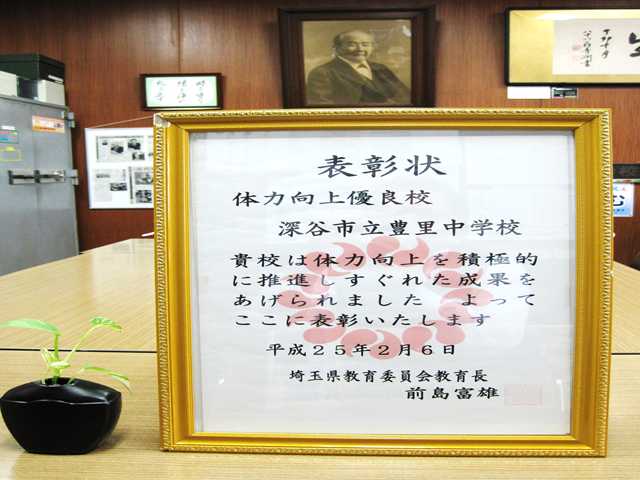 表彰状
体力向上優良校
深谷市立豊里中学校
貴校は体力向上を積極的
に推進しすぐれた成果を
あげられました　よって
ここに表彰いたします
平成２５年２月６日
埼玉県教育委員会教育長
前島富雄